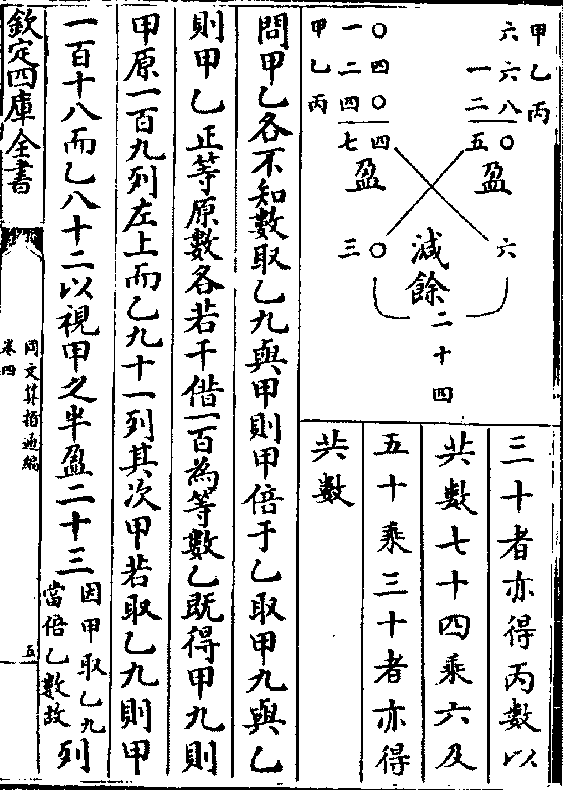 甲 六
乙 一六
丙 二八
五〇
盈
六
甲 一〇
乙 二四
丙 四〇
七四
盈
三〇
減餘
二十四
三十者亦得丙數以
共數七十四乘六及
五十乘三十者亦得
共數
問甲乙各不知數取乙九與甲則甲倍于乙取甲九與乙
則甲乙正等原數各若干借一百為等數乙既得甲九則
甲原一百九列左上而乙九十一列其次甲若取乙九則甲
一百十八而乙八十二以視甲之半盈二十三因甲取乙九當倍乙數故列
欽定四庫全書
同文算指通編
卷四
五